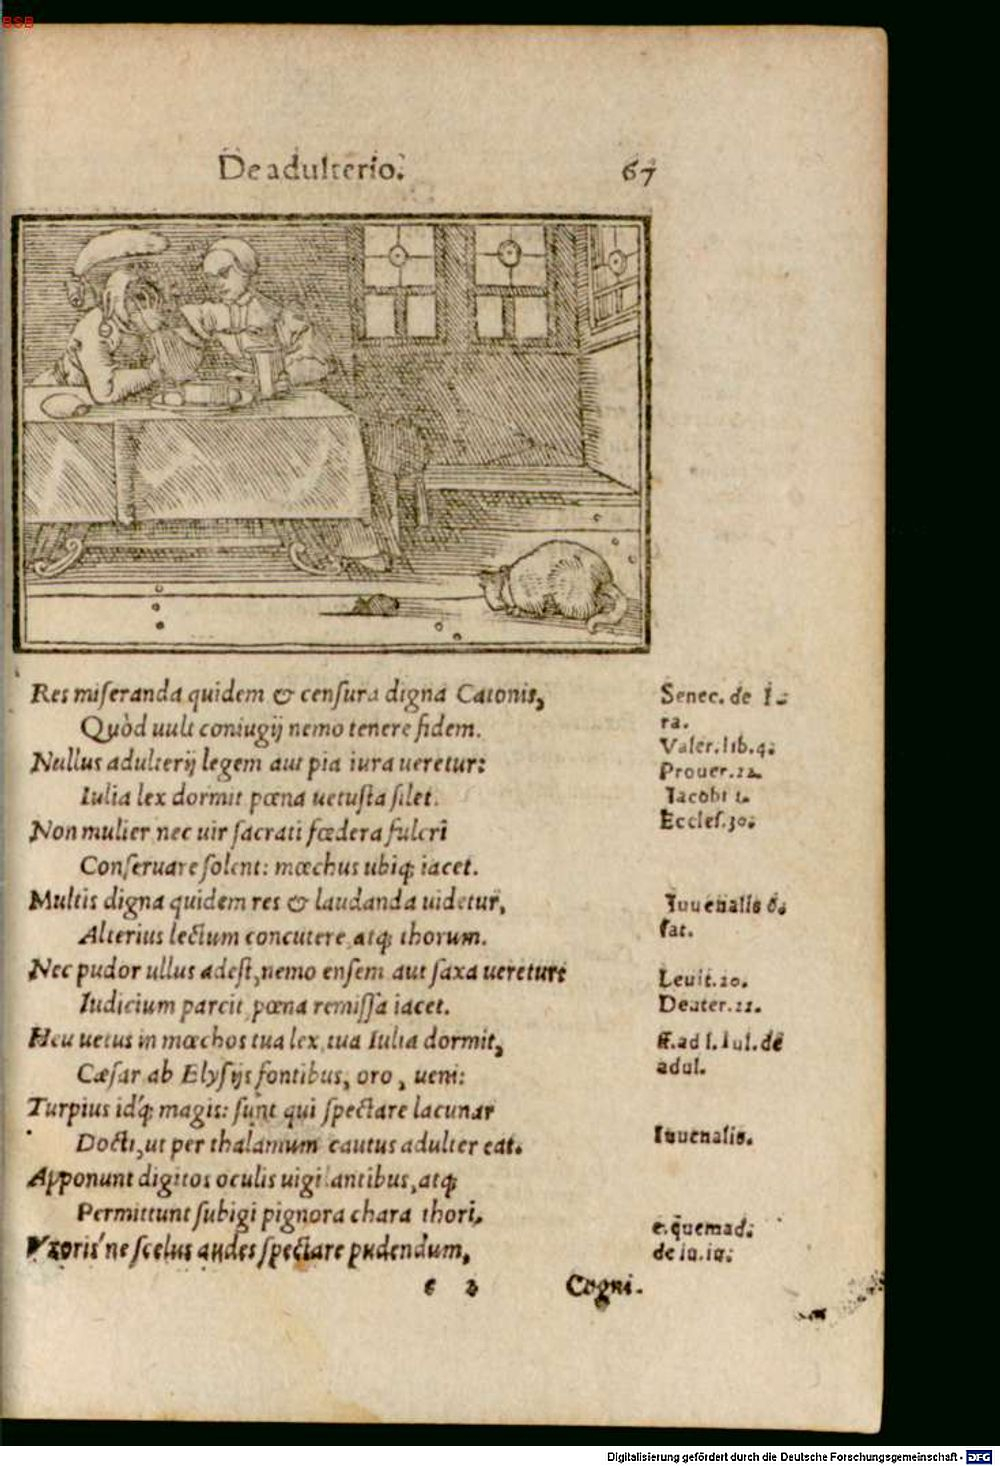 BSB
De adulterio.
67
Res miseranda quidem & censura digna Catonis,
Quòd uult coniugij nemo tenere fidem.
Nullus adulterij legem aut pia iura ueretur:
Iulia lex dormit pœna uetusta silet.
Non mulier nec uir sacrati fœdera fulcri
Conseruare solent: mœchus ubiq; iacet.
Multis digna quidem res & laudanda uidetur,
Alterius lectum concutere atq; thorum.
Nec pudor ullus adest, nemo ensem aut saxa ueretur:
Iudicium parcit pœna remissa iacet.
Heu uetus in mœchos tua lex, tua Iulia dormit,
Cæsar ab Elysijs fontibus, oro, ueni:
Turpius id'q; magis: sunt qui spectare lacunar
Docti, ut per thalamum cautus adulter eat.
Apponunt digitos oculis uigilantibus, atq;
Permittunt subigi pignora chara thori.
Vxoris'ne scelus audes spectare pudendum,
e 3
Cogni.
Senec. de I-
ra.
Valer. lib. 4.
Prouer. 22.
Iacobi 1.
Eccles. 30.
Iuuenalis 6.
sat.
Leuit. 20.
Deuter. 22.
ff. ad l. Iul. de
adul.
Iuuenalis.
e. quemad.
de iu. iu.
Digitalisierung gefördert durch die Deutsche Forschungsgemeinschaft - DFG